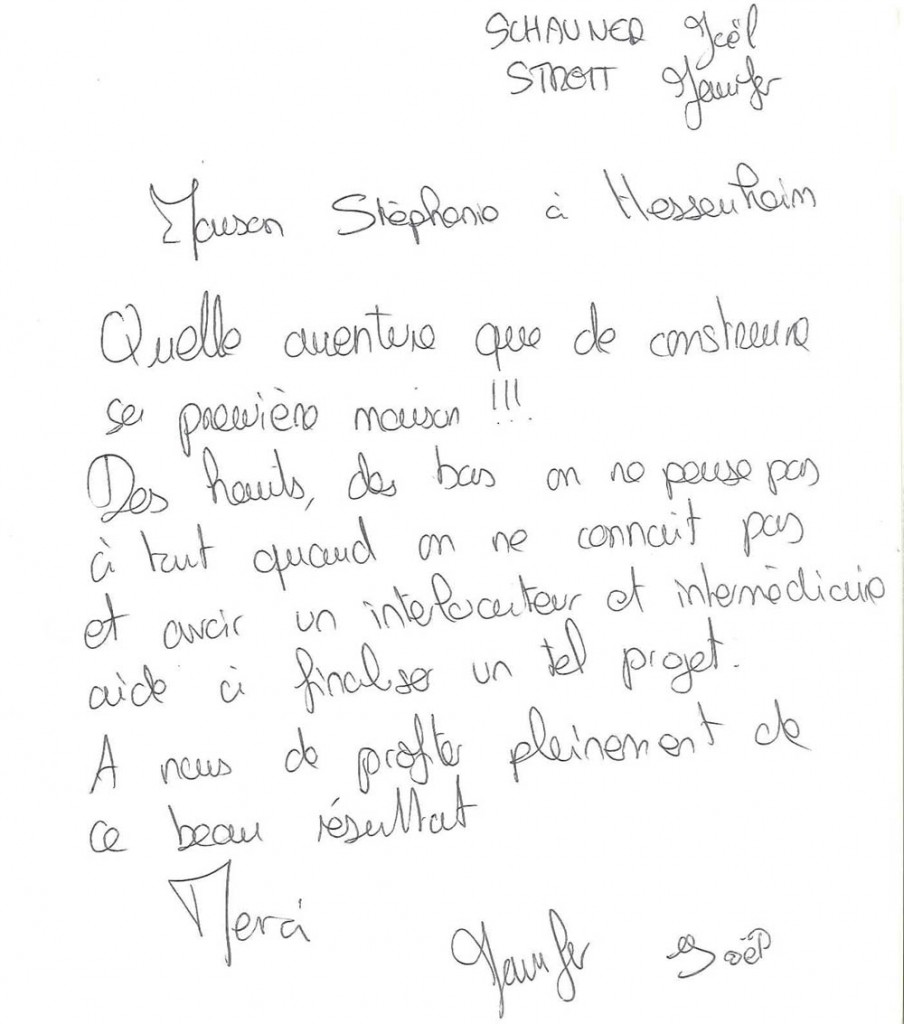 SCHAUNER Joël
STROTT Jennifer
Maison Stéphanie à Hessenheim
Quelle aventure que de construire
sa première maison !!!
Des hauts, des bas on ne pense pas
à tout quand on ne connait pas
et avoir un interlocuteur et intermédiaire
aide à finaliser un tel projet.
A nous de profiter pleinement de
ce beau résultat
Merci
Jennifer Joël